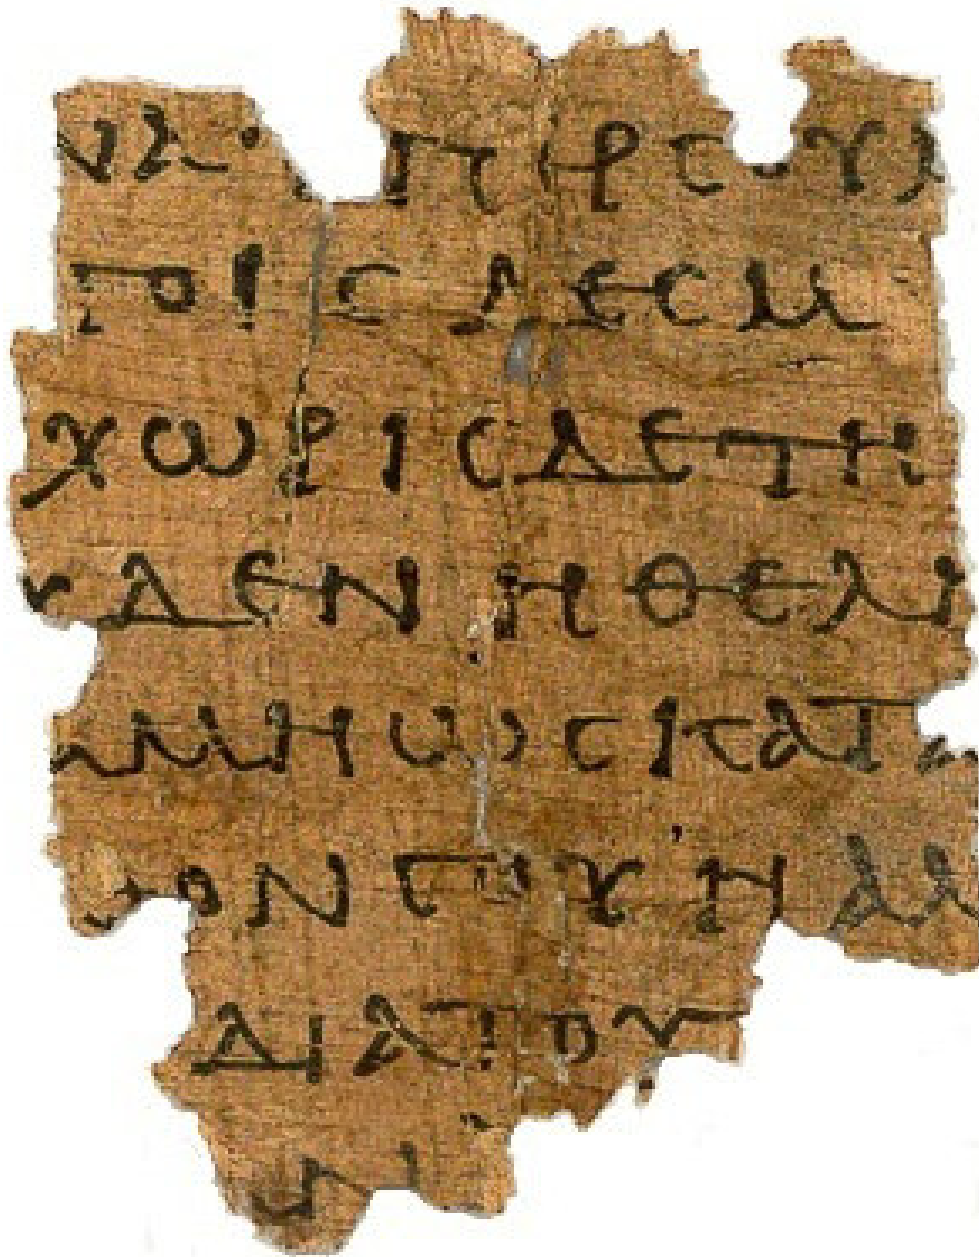 ΝΑ ΥΠΕΡϹΟΥ
ΤΟΙϹΔΕϹΜ
ΧΩΡΙϹΔΕΤΗ
ΥΔΕΝΗΘΕΛΗ
ΑΜΗΩϹΚΑΤ
ΟΝϹΟΥΗΑΛ
ΔΙΑΤΟΥ